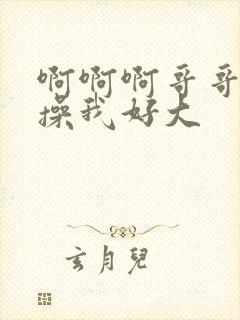 啊啊啊哥哥
操我好大
玄月兒